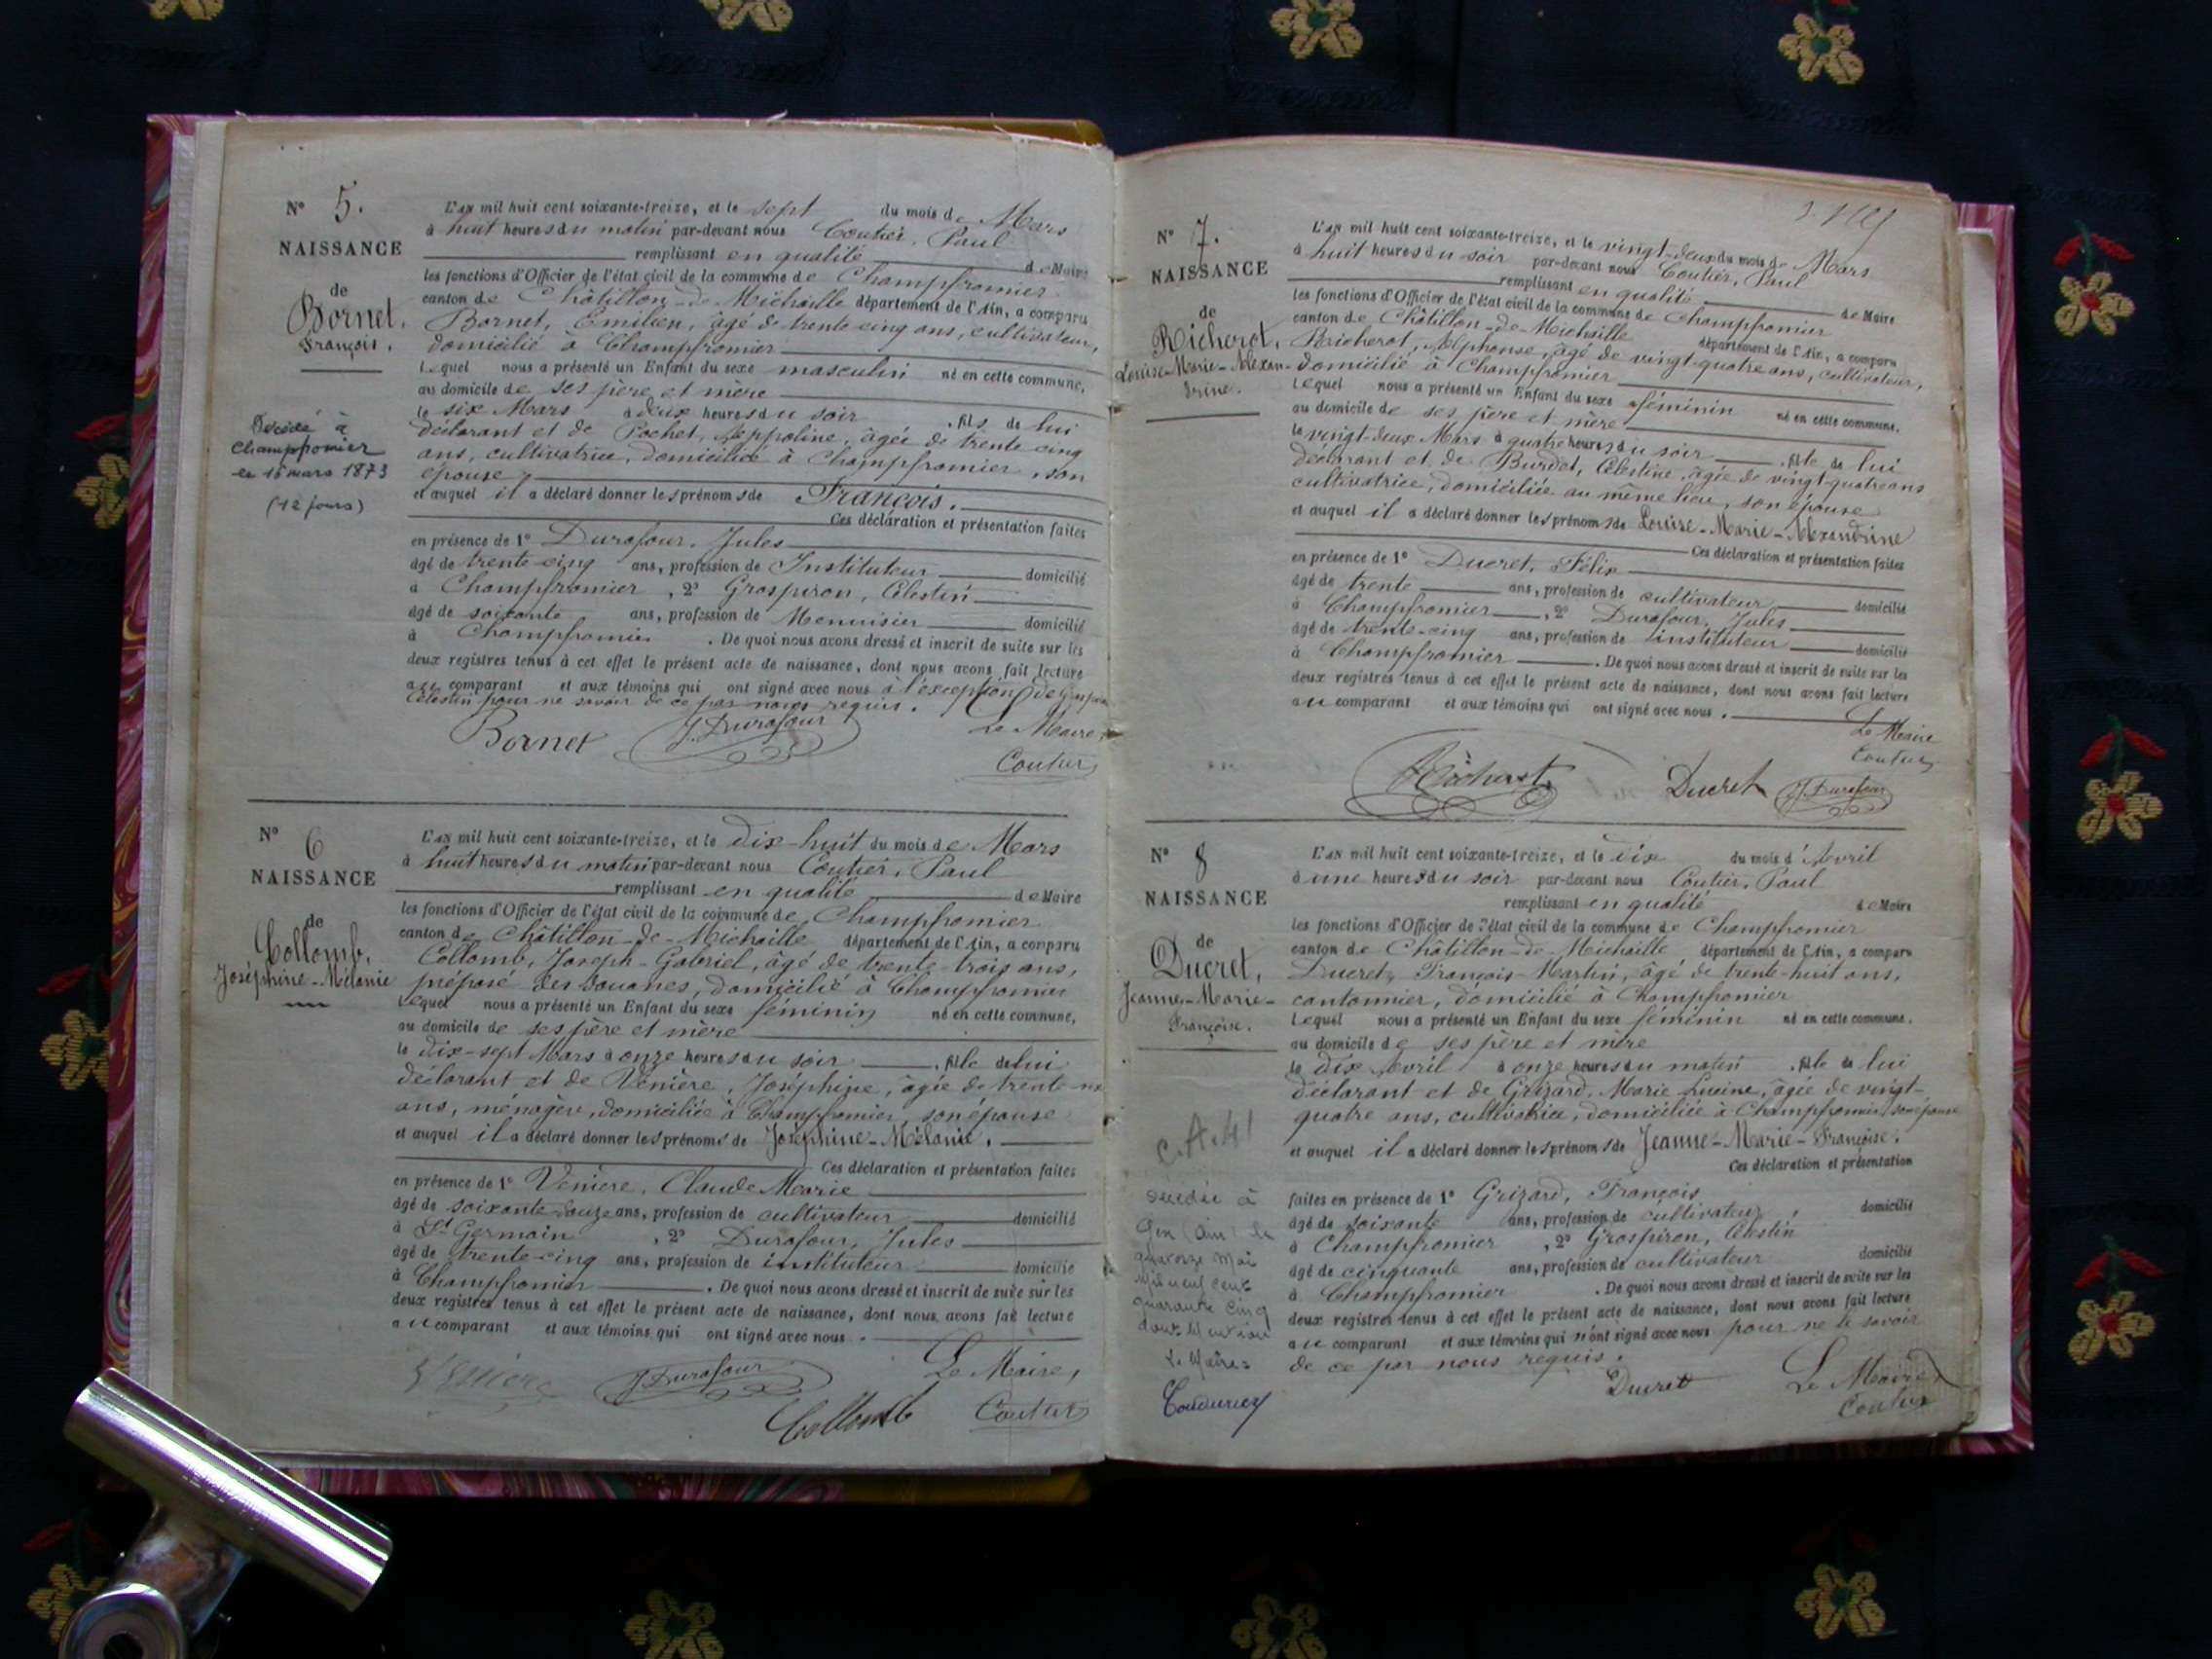 N° 5.
NAISSANCE
de
Bornet,
François.
Décédé à
Champfromier
le 18 mars 1873
(12 jours)
L'an mil huit cent soixante-treize, et le sept du mois de Mars
à huit heures du matin par-devant nous Coutier, Paul
remplissant en qualité de Maire
les fonctions d'Officier de l'état civil de la commune de Champfromier
canton de Châtillon-de-Michaille département de l'Ain, a comparu
Bornet, Emilien, âgé de trente cinq ans, cultivateur,
domicilié à Champfromier
Lequel nous a présenté un Enfant du sexe masculin né en cette commune,
au domicile de ses père et mère
le six Mars à deux heures du soir, fils de lui
déclarant et de Pochet, Seppoline, âgée de trente cinq
ans, cultivatrice, domiciliée à Champfromier, son
épouse,
et auquel il a déclaré donner les prénoms de François.
Ces déclaration et présentation faites
en présence de 1° Durafour, Jules
âgé de trente-cinq ans, profession de Instituteur domicilié
à Champfromier, 2° Grospiron, Célestin
âgé de soixante ans, profession de Menuisier domicilié
à Champfromier. De quoi nous avons dressé et inscrit de suite sur les
deux registres tenus à cet effet le présent acte de naissance, dont nous avons fait lecture
au comparant et aux témoins qui ont signé avec nous à l'exception de Grospiron
Célestin pour ne savoir de ce par nous requis.
Bornet J. Durafour Le Maire,
Coutier
N° 6
NAISSANCE
de
Collomb,
Joséphine-Mélanie
L'an mil huit cent soixante-treize, et le dix-huit du mois de Mars
à huit heures du matin par-devant nous Coutier, Paul
remplissant en qualité de Maire
les fonctions d'Officier de l'état civil de la commune de Champfromier
canton de Châtillon-de-Michaille département de l'Ain, a comparu
Collomb, Joseph-Gabriel, âgé de trente-trois ans,
préposé des douanes, domicilié à Champfromier
Lequel nous a présenté un Enfant du sexe féminin né en cette commune,
au domicile de ses père et mère
le dix-sept Mars à onze heures du soir, fille de lui
déclarant et de Venière, Joséphine, âgée de trente-
ans, ménagère, domiciliée à Champfromier son épouse
et auquel il a déclaré donner les prénoms de Joséphine-Mélanie.
Ces déclaration et présentation faites
en présence de 1° Venière, Claude Marie
âgé de soixante-douze ans, profession de cultivateur domicilié
à St Germain, 2° Durafour, Jules
âgé de trente-cinq ans, profession de instituteur domicilié
à Champfromier. De quoi nous avons dressé et inscrit de suite sur les
deux registres tenus à cet effet le présent acte de naissance, dont nous avons fait lecture
au comparant et aux témoins qui ont signé avec nous.
Venière J. Durafour Le Maire,
Collomb Coutier
N° 7.
NAISSANCE
de
Richerot,
Louise-Marie-Alexan-
drine.
L'an mil huit cent soixante-treize, et le vingt-deux du mois de Mars
à huit heures du soir par-devant nous Coutier, Paul
remplissant en qualité de Maire
les fonctions d'Officier de l'état civil de la commune de Champfromier
canton de Châtillon-de-Michaille département de l'Ain, a comparu
Richerot, Alphonse, âgé de vingt-quatre ans, cultivateur,
domicilié à Champfromier
Lequel nous a présenté un Enfant du sexe féminin né en cette commune,
au domicile de ses père et mère
le vingt-deux Mars à quatre heures du soir, fille de lui
déclarant et de Burdet, Célestine, âgée de vingt-quatre ans
cultivatrice, domiciliée au même lieu, son épouse
et auquel il a déclaré donner les prénoms de Louise-Marie-Alexandrine
Ces déclaration et présentation faites
en présence de 1° Ducret, Félix
âgé de trente ans, profession de cultivateur domicilié
à Champfromier, 2° Durafour, Jules
âgé de trente-cinq ans, profession de instituteur domicilié
à Champfromier. De quoi nous avons dressé et inscrit de suite sur les
deux registres tenus à cet effet le présent acte de naissance, dont nous avons fait lecture
au comparant et aux témoins qui ont signé avec nous.
Le Maire
Coutier
Richerot Ducret J. Durafour
N° 8
NAISSANCE
de
Ducret,
Jeanne-Marie-
Françoise.
décédée à
Gex (Ain) le
quatorze Mai
mil neuf cent
quarante cinq
dont mention
Le Maire
L'an mil huit cent soixante-treize, et le dix du mois d'Avril
à une heure du soir par-devant nous Coutier, Paul
remplissant en qualité de Maire
les fonctions d'Officier de l'état civil de la commune de Champfromier
canton de Châtillon-de-Michaille département de l'Ain, a comparu
Ducret, François-Martin, âgé de trente-huit ans,
cantonnier, domicilié à Champfromier
Lequel nous a présenté un Enfant du sexe féminin né en cette commune,
au domicile de ses père et mère
le dix Avril à onze heures du matin, fille de lui
déclarant et de Grizard, Marie Lucine, âgée de vingt-
quatre ans, cultivatrice, domiciliée à Champfromier, son épouse
et auquel il a déclaré donner les prénoms de Jeanne-Marie-Françoise.
Ces déclaration et présentation
faites en présence de 1° Grizard, François
âgé de soixante ans, profession de cultivateur, domicilié
à Champfromier, 2° Grospiron, Célestin
âgé de cinquante ans, profession de cultivateur domicilié
à Champfromier. De quoi nous avons dressé et inscrit de suite sur les
deux registres tenus à cet effet le présent acte de naissance, dont nous avons fait lecture
au comparant et aux témoins qui n'ont signé avec nous pour ne le savoir
de ce par nous requis.
Ducret Le Maire
Coutier